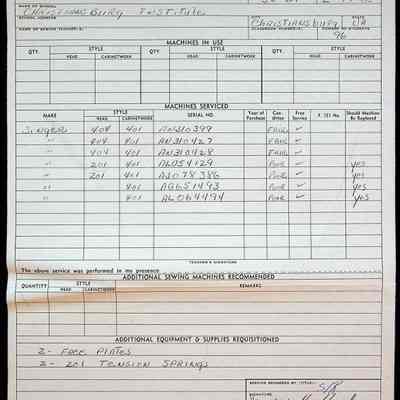 NAME OF SCHOOL
CHRISTIANSBURG INSTITUTE
SCHOOL ADDRESS CITY STATE
CHRISTIANSBURG VA
NAME OF SEWING TEACHER(S) CLASSROOM NUMBER(S) NUMBER OF STUDENTS
96
MACHINES IN USE
QTY. STYLE QTY. STYLE QTY. STYLE
HEAD CABINETWORK HEAD CABINETWORK HEAD CABINETWORK
MACHINES SERVICED
MAKE STYLE SERIAL NO. Year of Purchase Condition Free Service Should Machine Be Replaced
HEAD CABINETWORK
SINGER 404 401 AN310399 FAIR ✓
" 404 401 AN310427 FAIR ✓
" 404 401 AN310428 FAIR ✓
" 201 401 AL054129 POOR ✓ yes
" 201 401 AJ078386 POOR ✓ yes
" 401 AG651493 POOR ✓ yes
" 401 AL064494 POOR ✓ yes
TEACHER'S SIGNATURE
The above service was performed in my presence
ADDITIONAL SEWING MACHINES RECOMMENDED
QUANTITY STYLE REMARKS
HEAD CABINETWORK
ADDITIONAL EQUIPMENT & SUPPLIES REQUISITIONED
2 - FACE PLATES
2 - 201 TENSION SPRINGS
SERVICE RENDERED BY (TITLE)
SIGNATURE